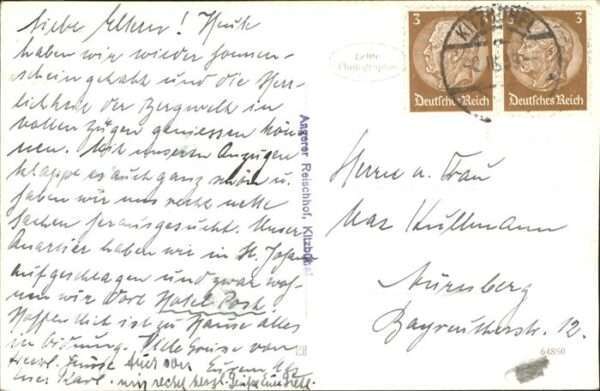 Liebe Eltern! Heute
haben wir wieder Sonnen-
schein gehabt und die Herr-
lichkeit der Bergwelt in
vollen Zügen geniessen kön-
nen. Mit unseren Anzügen
klappt es auch ganz schön u.
haben wir uns recht nette
Sachen herausgesucht. Unser
Quartier haben wir in St. Johann
aufgeschlagen und zwar woh-
nen wir dort Hotel Post.
Hoffentlich ist zu Hause alles
in Ordnung. Viele Grüsse von
Eurem
Angerer Reischhof, Kitzbühel
Echte
Photographie
KITZBÜHEL
3
Deutsches Reich
3
Deutsches Reich
Herrn u. Frau
Max Kullmann
Nürnberg
Bayreutherstr. 12.
64880